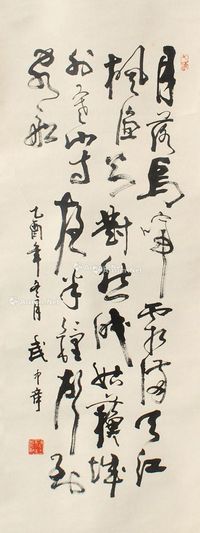 月落烏啼霜滿天江
楓漁火對愁眠姑蘓城
外寒山寺夜半鐘聲到
客船
乙酉年月武中奇